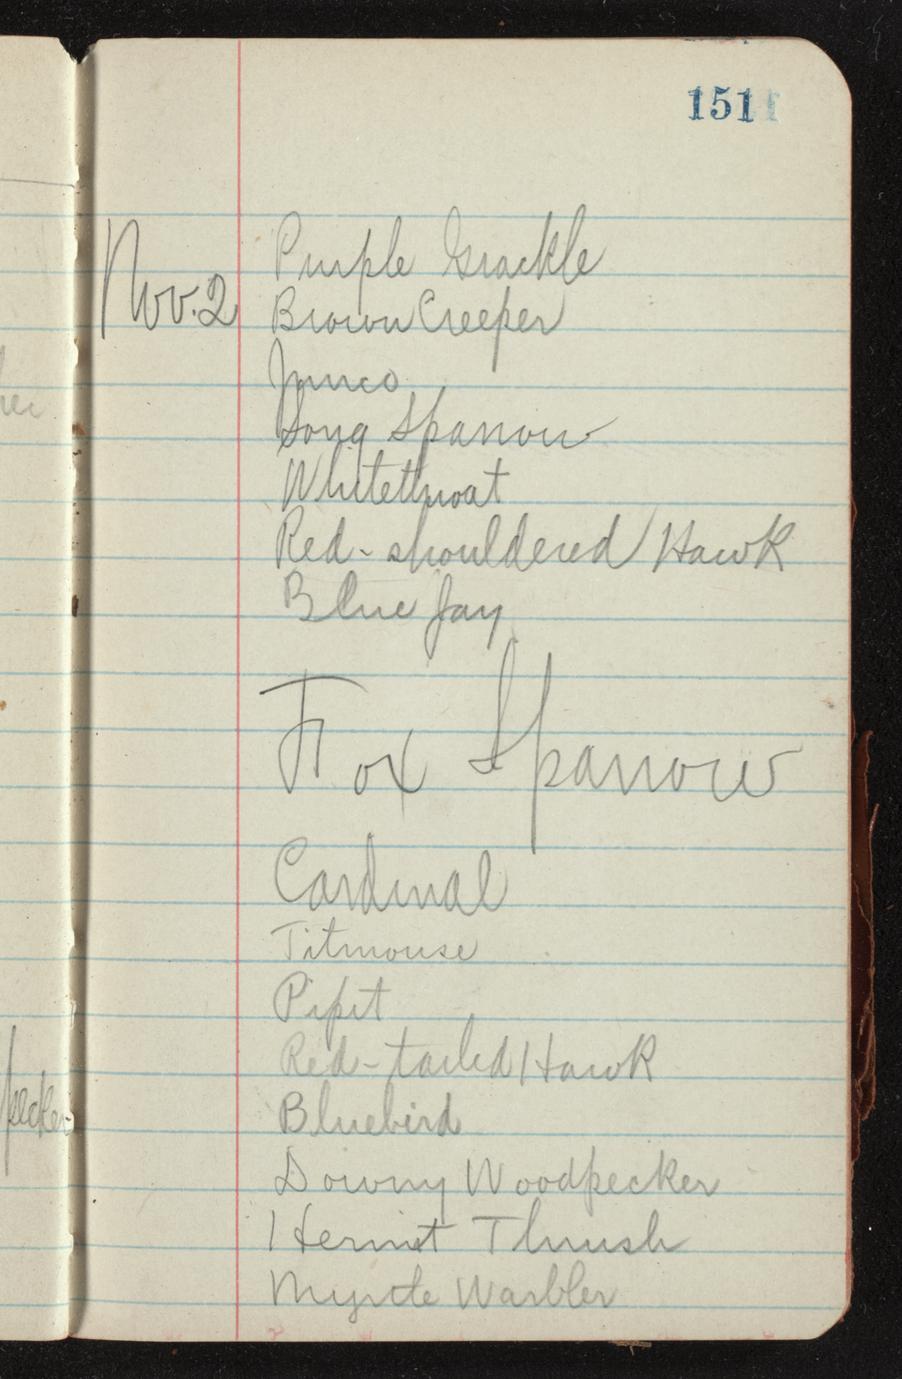 151
Purple Grackle
Nov. 2 Brown Creeper
Junco
Song Sparrow
Whitethroat
Red-shouldered Hawk
Blue Jay
Fox Sparrow
Cardinal
Titmouse
Pipit
Red-tailed Hawk
Bluebird
Downy Woodpecker
Hermit Thrush
Myrtle Warbler
pecker